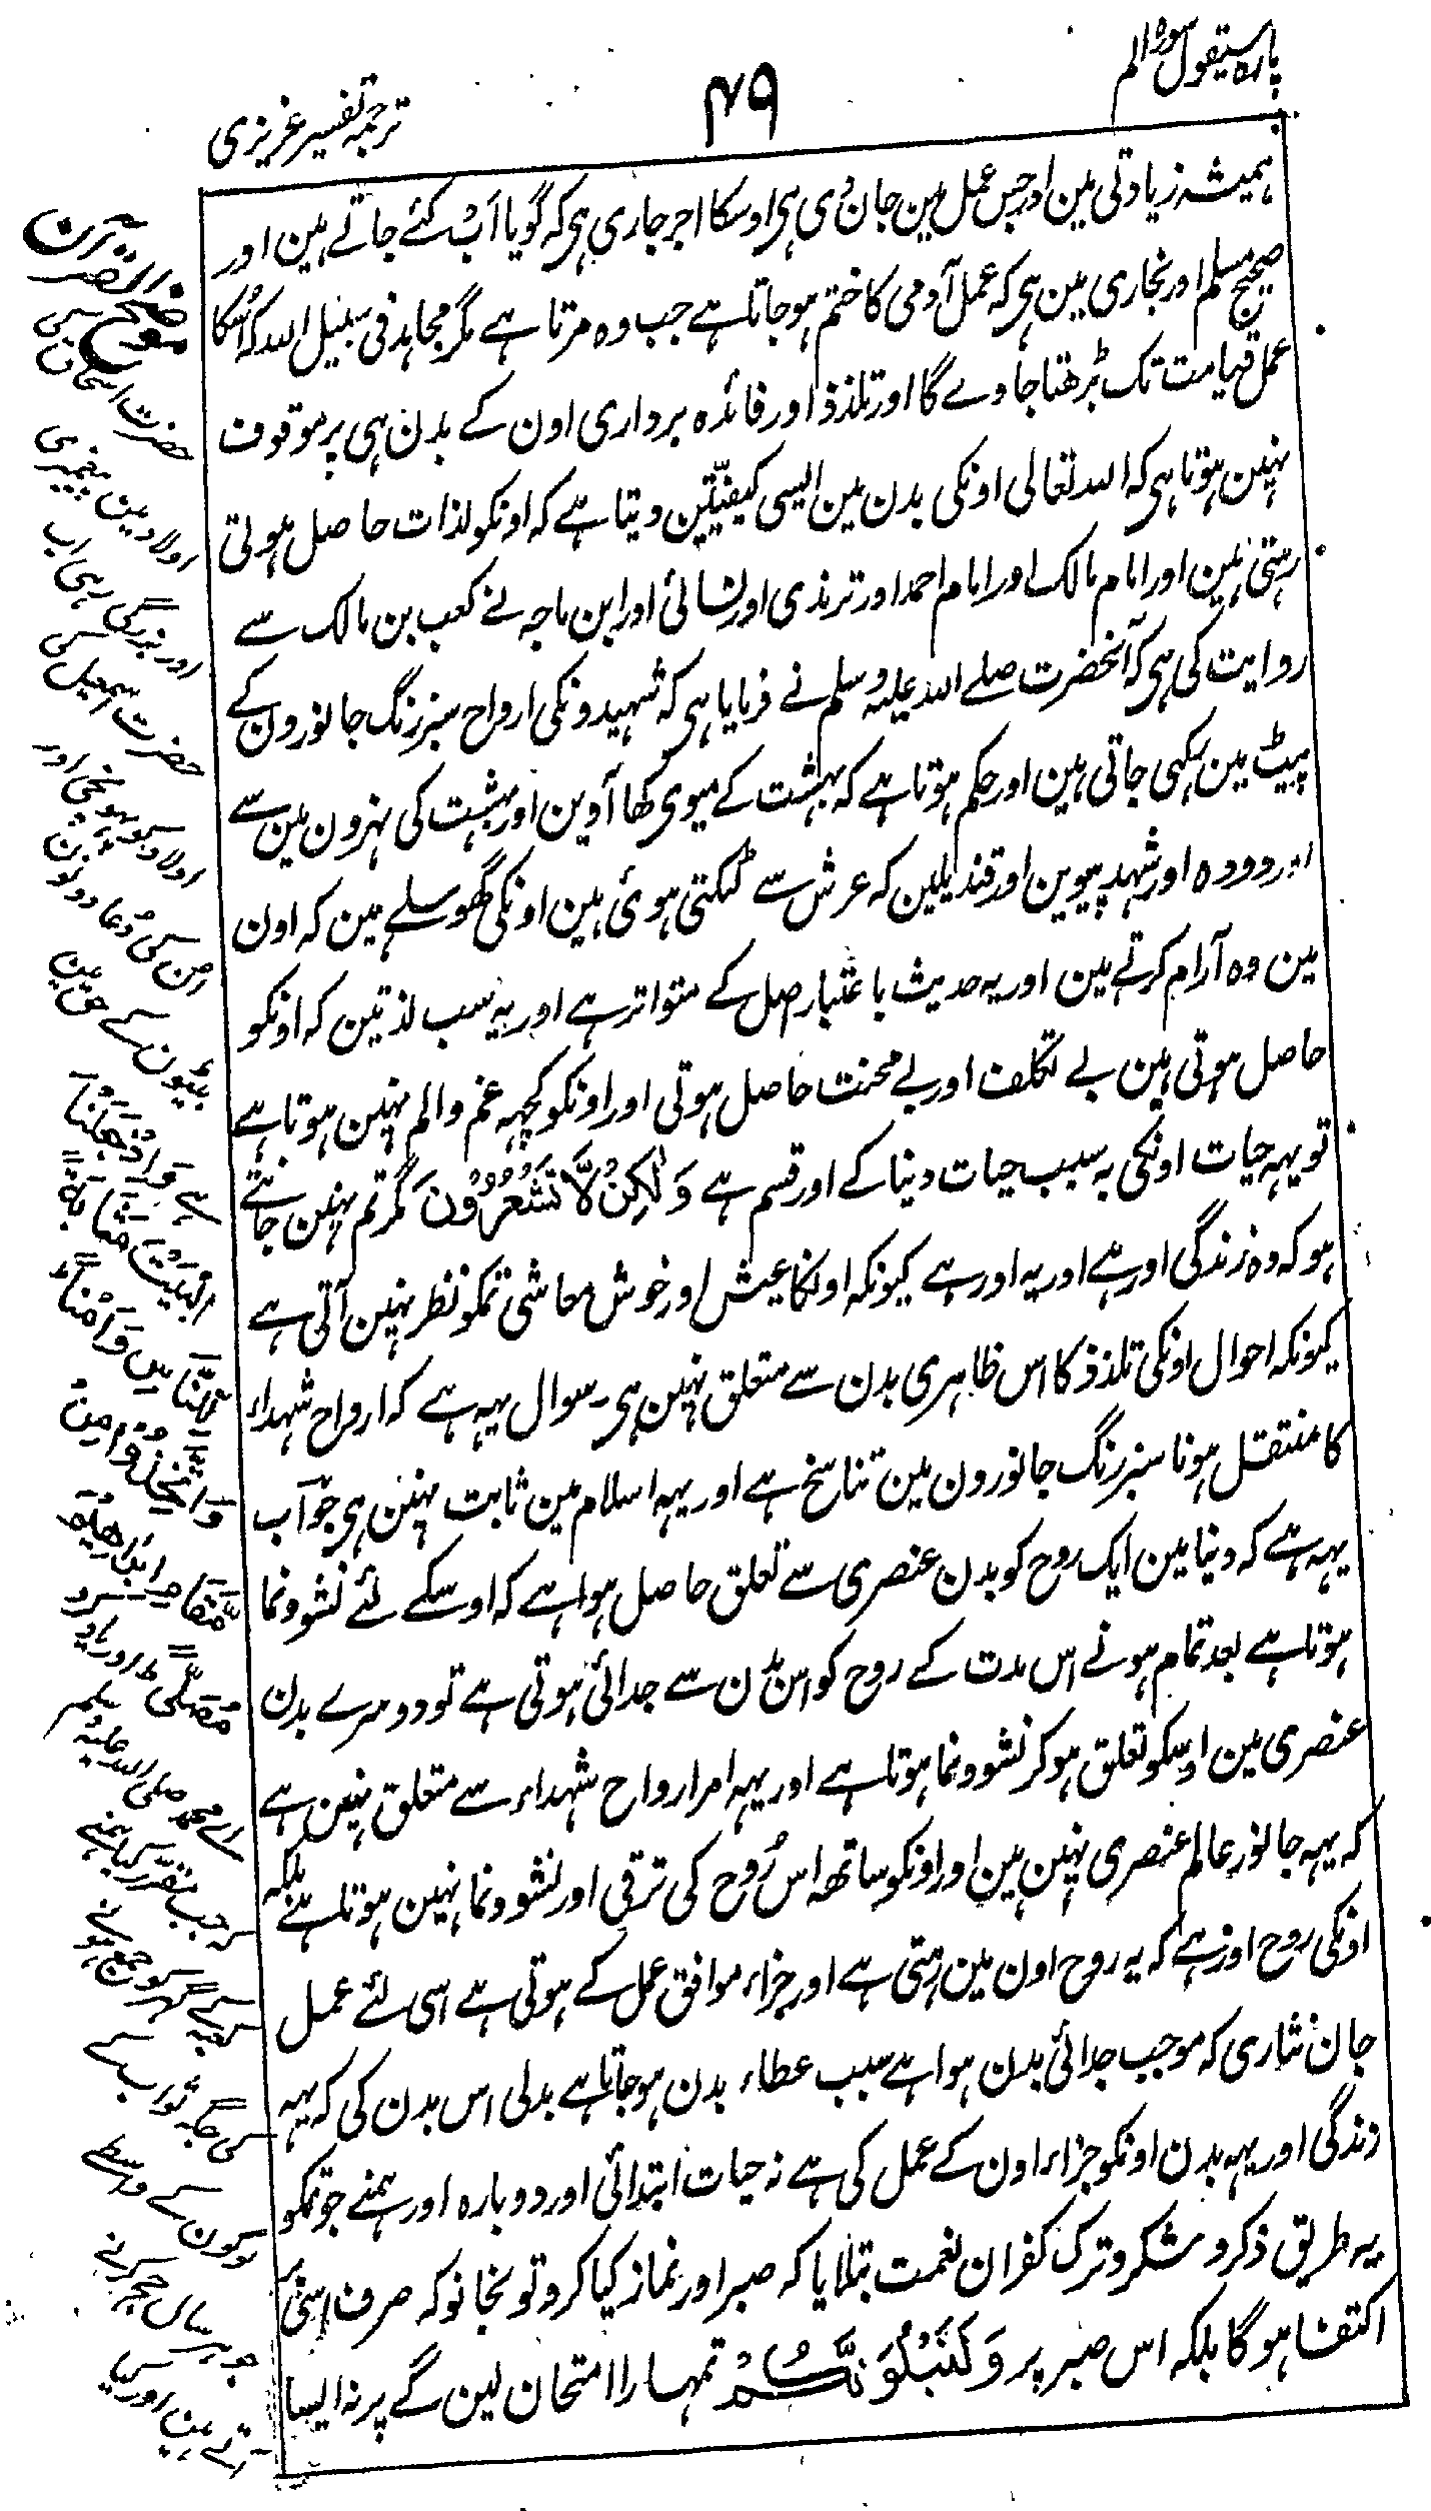 پارہ سیقول سورہ الم
۴۹
ترجمہ تفسیر عزیزی
ہمیشہ زیادتی مین اور جس عمل مین جان دی ہی اوسکا اجر جاری ہی کہ گویا اَب کئے جاتے ہین اور
صحیح مسلم اور بخاری مین ہی کہ عمل آدومی کا ختم ہوجاتا ہے جب وہ مرتا ہے مگر مجاہد فی سبیل اللہ کہ اُسکا
عمل قیامت تک بڑھتا جاوے گا اور تلذذ اور فائدہ برداری اون کے بدن ہی پر موقوف
نہین ہوتا ہی کہ اللہ تعالی اونکی بدن مین ایسی کیفیّتین دیتا ہے کہ اونکو لذات حاصل ہوتی
رہتی ہین اور امام مالک اور امام احمد اور ترمذی اور نسائی اور ابن ماجہ نے کعب بن مالک سے
روایت کی ہی کہ آنحضرت صلے اللہ علیہ وسلم نے فرمایا ہی کہ شہیدونکی ارواح سبز رنگ جانورون کے
پیٹ مین رکھی جاتی ہین اور حکم ہوتا ہے کہ بہشت کے میوی کھا آوین اور بہشت کی نہرون مین سے
اور دودہ اور شہد پیوین اور قندیلین کہ عرش سے لٹکتی ہوئی ہین اونکی گھوسلے مین کہ اون
مین وہ آرام کرتے مین اور یہ حدیث باعتبار اصل کے متواتر ہے اور یہ سب لذتین کہ اونکو
حاصل ہوتی ہین بے تکلف اور بے محنت حاصل ہوتی اور اونکو کچہہ غم والم نہین ہوتا ہے
تو یہہ حیات اونکی بہ سبب حیات دینا کے اور قسم ہے وَلٰکِنْ لَّا تَشْعُرُوْنَ مگر تم نہین جانتے
ہو کہ وہ زندگی اور ہے اور یہ اور ہے کیونکہ اونکا عیش اور خوش معاشی تمکو نظر نہین آتی ہے
کیونکہ احوال اونکی تلذذ کا اس ظاہری بدن سے متعلق نہین ہی۔ سوال یہہ ہے کہ ارواح شہداء
کا منتقل ہونا سبز رنگ جانورون مین تناسخ ہے اور یہہ اسلام مین ثابت نہین ہی جوآب
یہہ ہے کہ دنیا مین ایک روح کو بدن عنصری سے تعلق حاصل ہوا ہے کہ اوسکے لئے نشوونما
ہوتا ہے بعد تمام ہونے اس مدت کے روح کو اس بدن سے جدائی ہوتی ہے تو دوسرے بدن
عنصری مین اوسکو تعلق ہوکر نشوونما ہوتا ہے اور یہہ امر ارواح شہداء سے متعلق نہین ہے
کہ یہہ جانور عالم عنصری نہین ہین اور اونکو ساتھ اس رُوح کی ترقی اور نشوونما نہین ہوتا ہے بلکہ
اونکی روح اور ہے کہ یہ روح اون مین رہتی ہے اور جزاء موافق عمل کے ہوتی ہے اسی لئے عمل
جان نثاری کہ موجب جدائی بدن ہوا ہے سبب عطاء بدن ہوجاتا ہے بدلی اس بدن کی کہ یہہ
زندگی اور یہہ بدن اونکو جزاء اون کے عمل کی ہے نہ حیات ابتدائی اور دوبارہ اور ہمنے جو تمکو
یہ طریق ذکر و شکر و ترک کفران نعمت بتلایا کہ صبر اور نماز کیا کرو تو نجانو کہ صرف اسی پر
اکتفا ہوگا بلکہ اس صبر پر وَلَنَبْلُوَنَّکُمْ تمہارا امتحان لین گے پر نہ ایسا
موضح القرآن
حضرت اسحاق کی
اولاد مین پیغمبری
اور بزرگی رہی اب
حضرت اسمعیل کی
اولاد کو پہونچی اور
اِن کی دُعا دونون
بیٹیون کے حق مین
ہے وَاِذْ جَعَلْنَا
الْبَیْتَ مَثَابَةً
لِّلنَّاسِ وَاَمْنًا
وَاتَّخِذُوْا مِنْ
مَّقَامِ اِبْرَاهِیْمَ
مُصَلًّی اور یاد کرو
اے محمد صلی اللہ علیہ وسلم
کہ جب مقرر کیا ہمنے
کعبے کے گھر کو جمع ہونے
کی جگہ اور سب
لوگون کے واسطے
جو ہر سال حج کرنے
آتے ہین اور اس